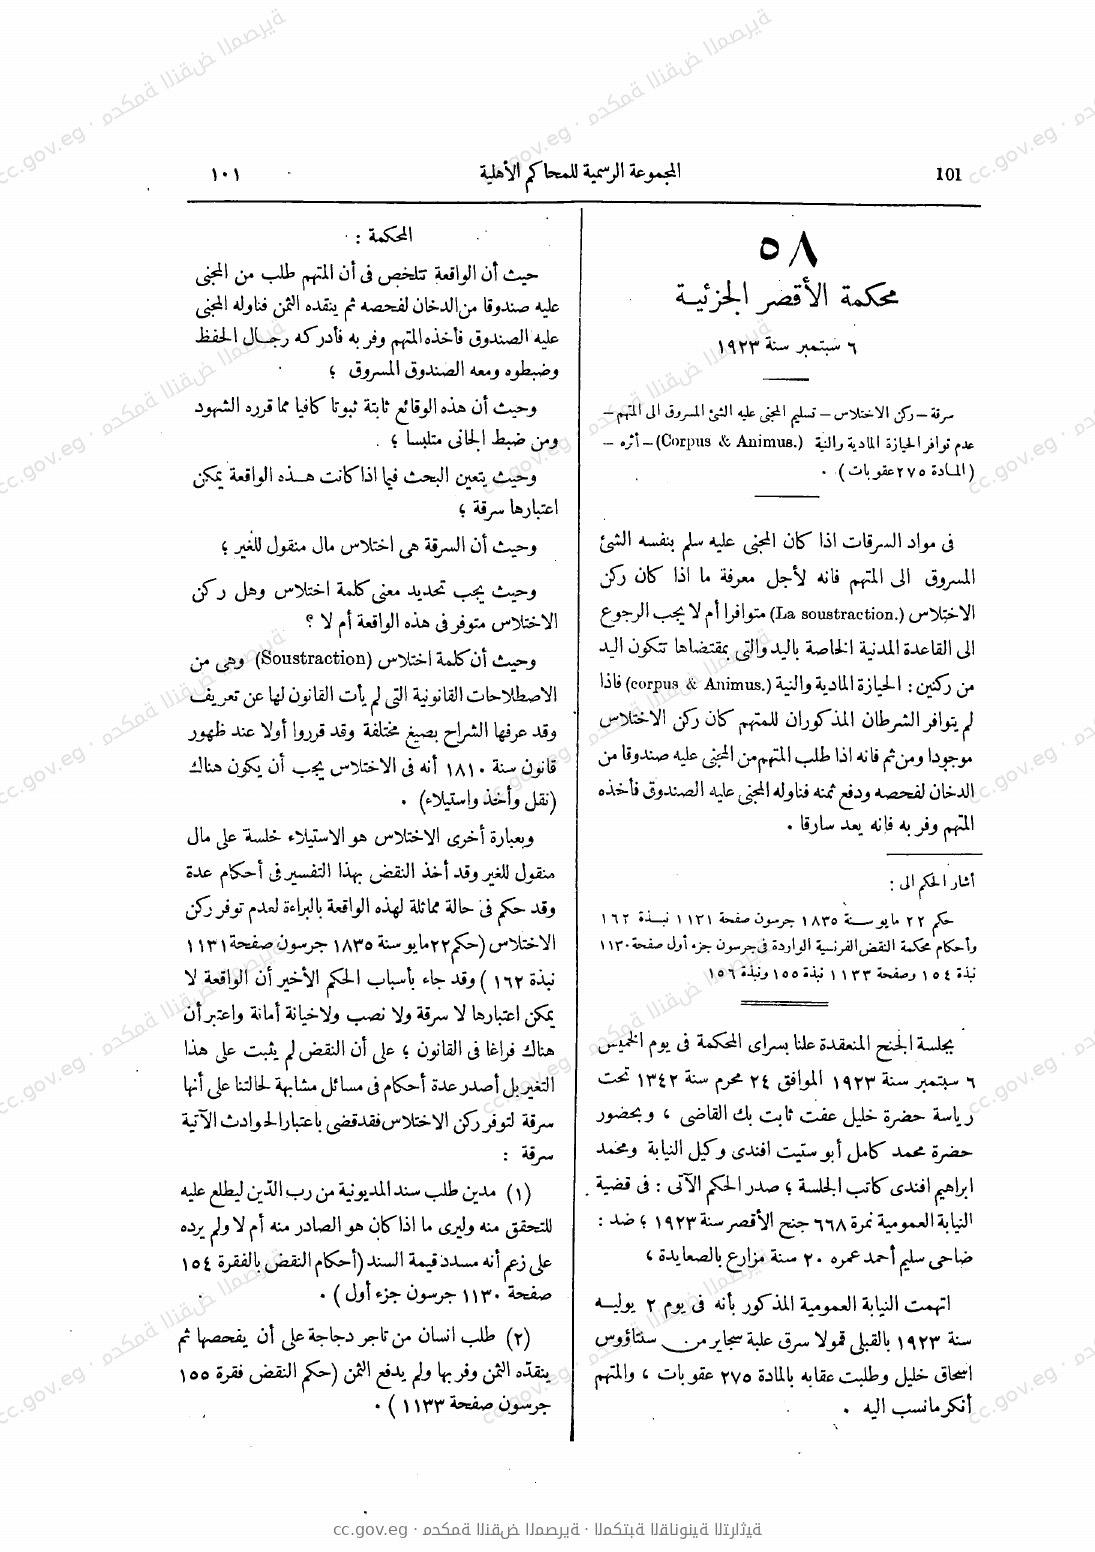 101
المجموعة الرسمية للمحاكم الأهلية
١٠١
٥٨
محكمة الأقصر الجزئية
٦ سبتمبر سنة ١٩٢٣
سرقة – ركن الاختلاس – تسليم المجنى عليه الشئ المسروق الى المتهم –
عدم توافر الحيازة المادية والنية (Corpus & Animus.) – أثره –
(المادة ٢٧٥ عقوبات) .
فى مواد السرقات اذا كان المجنى عليه سلم بنفسه الشئ
المسروق الى المتهم فانه لأجل معرفة ما اذا كان ركن
الاختلاس (La soustraction.) متوافرا أم لا يجب الرجوع
الى القاعدة المدنية الخاصة باليد والتى بمقتضاها تتكون اليد
من ركنين : الحيازة المادية والنية (corpus & Animus.) فاذا
لم يتوافر الشرطان المذكوران للمتهم كان ركن الاختلاس
موجودا ومن ثم فانه اذا طلب المتهم من المجنى عليه صندوقا من
الدخان لفحصه ودفع ثمنه فناوله المجنى عليه الصندوق فأخذه
المتهم وفر به فانه يعد سارقا .
أشار الحكم الى :
حكم ٢٢ مايو سنة ١٨٣٥ جرسون صفحة ١١٣١ نبذة ١٦٢
وأحكام محكمة النقض الفرنسية الواردة فى جرسون جزء أول صفحة ١١٣٠
نبذة ١٥٤ وصفحة ١١٣٣ نبذة ١٥٥ ونبذة ١٥٦
بجلسة الجنح المنعقدة علنا بسراى المحكمة فى يوم الخميس
٦ سبتمبر سنة ١٩٢٣ الموافق ٢٤ محرم سنة ١٣٤٢ تحت
رياسة حضرة خليل عفت ثابت بك القاضى ، وبحضور
حضرة محمد كامل أبو ستيت افندى وكيل النيابة ومحمد
ابراهيم افندى كاتب الجلسة ؛ صدر الحكم الآتى : فى قضية
النيابة العمومية نمرة ٦٦٨ جنح الأقصر سنة ١٩٢٣ ؛ ضد :
ضاحى سليم أحمد عمره ٢٠ سنة مزارع بالصعايدة ،
اتهمت النيابة العمومية المذكور بأنه فى يوم ٢ يوليه
سنة ١٩٢٣ بالقبلى قمولا سرق علبة سجاير من سنتاؤوس
اسحاق خليل وطلبت عقابه بالمادة ٢٧٥ عقوبات ، والمتهم
أنكر ما نسب اليه .
المحكمة :
حيث أن الواقعة تتلخص فى أن المتهم طلب من المجنى
عليه صندوقا من الدخان لفحصه ثم ينقده الثمن فناوله المجنى
عليه الصندوق فأخذه المتهم وفر به فأدركه رجال الحفظ
وضبطوه ومعه الصندوق المسروق ؛
وحيث أن هذه الوقائع ثابتة ثبوتا كافيا مما قرره الشهود
ومن ضبط الجانى متلبسا ؛
وحيث يتعين البحث فيما اذا كانت هذه الواقعة يمكن
اعتبارها سرقة ؛
وحيث أن السرقة هى اختلاس مال منقول للغير ؛
وحيث يجب تحديد معنى كلمة اختلاس وهل ركن
الاختلاس متوفر فى هذه الواقعة أم لا ؟
وحيث أن كلمة اختلاس (Soustraction) وهى من
الاصطلاحات القانونية التى لم يأت القانون لها عن تعريف
وقد عرفها الشراح بصيغ مختلفة وقد قرروا أولا عند ظهور
قانون سنة ١٨١٠ أنه فى الاختلاس يجب أن يكون هناك
(نقل وأخذ واستيلاء) .
وبعبارة أخرى الاختلاس هو الاستيلاء خلسة على مال
منقول للغير وقد أخذ النقض بهذا التفسير فى أحكام عدة
وقد حكم فى حالة مماثلة لهذه الواقعة بالبراءة لعدم توفر ركن
الاختلاس (حكم ٢٢ مايو سنة ١٨٣٥ جرسون صفحة ١١٣١
نبذة ١٦٢) وقد جاء بأسباب الحكم الأخير أن الواقعة لا
يمكن اعتبارها لا سرقة ولا نصب ولا خيانة أمانة واعتبر أن
هناك فراغا فى القانون ؛ على أن النقض لم يثبت على هذا
التغير بل أصدر عدة أحكام فى مسائل مشابهة لحالتنا على أنها
سرقة لتوفر ركن الاختلاس فقد قضى باعتبار الحوادث الآتية
سرقة :
(١) مدين طلب سند المديونية من رب الدين ليطلع عليه
للتحقق منه وليرى ما اذا كان هو الصادر منه أم لا ولم يرده
على زعم أنه مسدد قيمة السند (أحكام النقض بالفقرة ١٥٤
صفحة ١١٣٠ جرسون جزء أول) .
(٢) طلب انسان من تاجر دجاجة على أن يفحصها ثم
ينقده الثمن وفر بها ولم يدفع الثمن (حكم النقض فقرة ١٥٥
جرسون صفحة ١١٣٣) .
cc.gov.eg · محكمة النقض المصرية · المكتبة القانونية التراثية